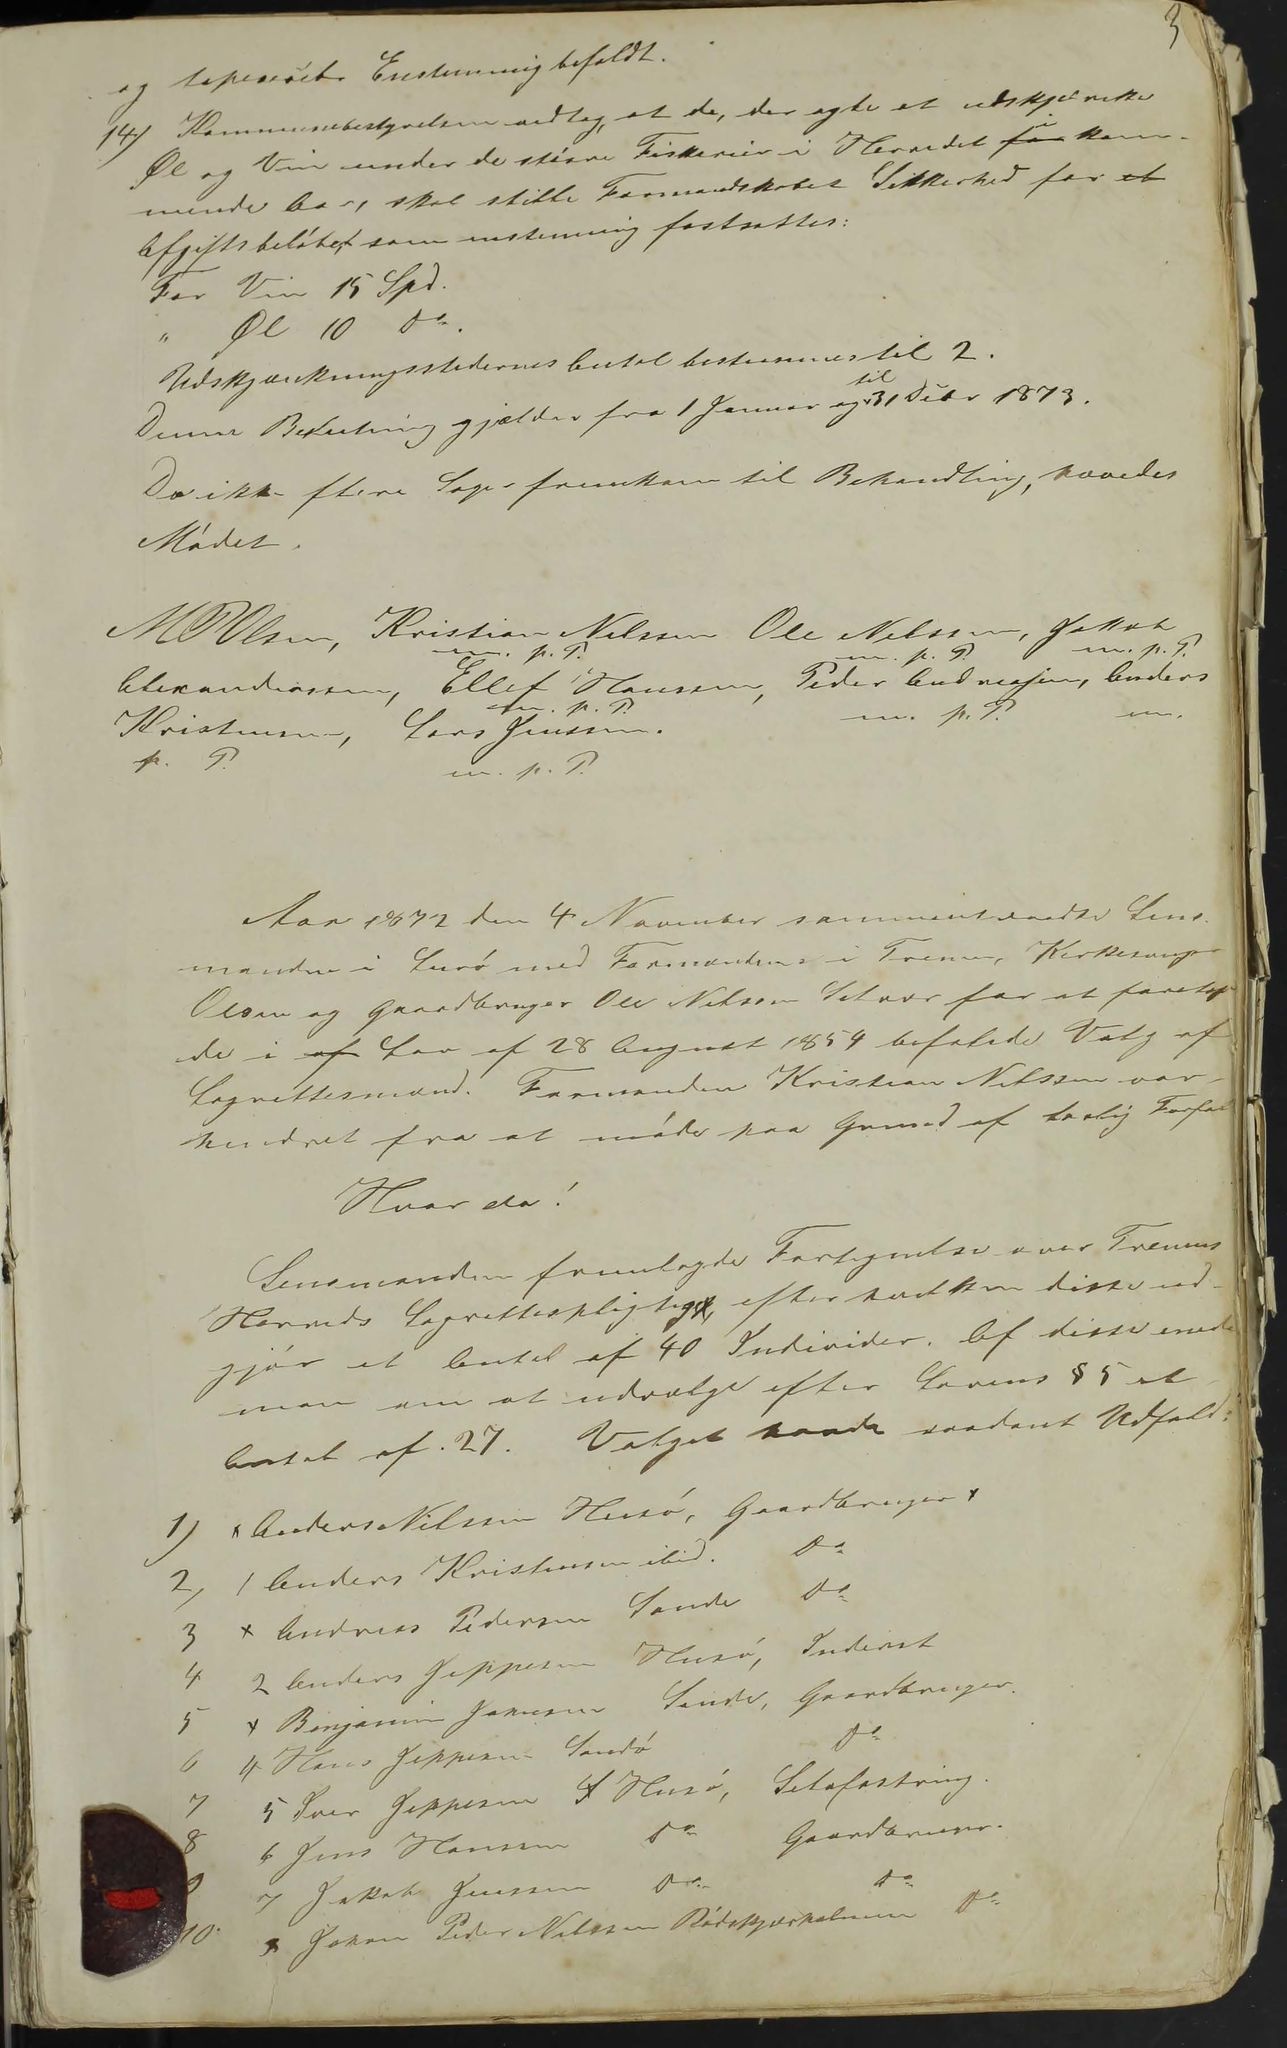 3
og Enstemmig befaldt.
14) Kommunebestyrelsen vedtog, at de, der agte at udskjænke
Øl og Vin under de större Fiskerier i Herredet i kom-
mende Aar, skal stille Formandskabet Sikkerhed for et
Afgiftsbelöbet som enstemmig fastsattes:
For Vin 15 Spd.
" Øl 10 do.
Udskjænkningsstedernes Antal bestemmes til 2.
Denne Beslutning gjælder fra 1 Januar og til 31 Decbr 1873.
Da ikke flere Sager fremkom til Behandling, hævedes
Mödet.
M P Olsen, Kristian Nilssen Ole Nilssen, Jakob
m. p. P. m. p. P. m. p. P.
Alexanderssen, Ellef Hanssen, Peder Andreasen, Anders
m. p. P. m. p. P. m.
Kristensen, Lars Jenssen.
p. P. m. p. P.
Aar 1872 den 4 November sammentraadte Lens-
manden i Lurö med Formændene i Trænen, Kirkesanger
Olsen og Gaardbruger Ole Nilssen Selvær for at foretage
de i af Lov af 28 August 1854 befalede Valg af
Lagrettesmænd. Formanden Kristian Nilssen var
hindret fra at möde paa Grund af lovlig Forfald
Hvor da!
Lensmanden fremlagde Fortegnelse over Trænens
Herreds Lagrettespligtige, efter hvilken disse ud-
gjör et Antal af 40 Individer. Af disse enede
man om at udvælge efter Lovens § 5 et
Antal af 27. Valget havde saadant Udfald:
1) x Anders Nilssen Husö, Gaardbruger x
2, 1 Anders Kristensen ibid. do
3 x Andreas Pedersen Sande do
4 2 Anders Jeppesen Husö, Inderst
5 x Benjamin Johnsen Sande, Gaardbruger.
6 4 Hans Jeppesen Sandö do
7 5 Iver Jeppesen Husö, Selvfostring.
8 6 Jens Hanssen do Gaardbruger.
9 7 Jakob Jenssen do do
10. x Johan Peder Nilssen Rödskjærholmen do